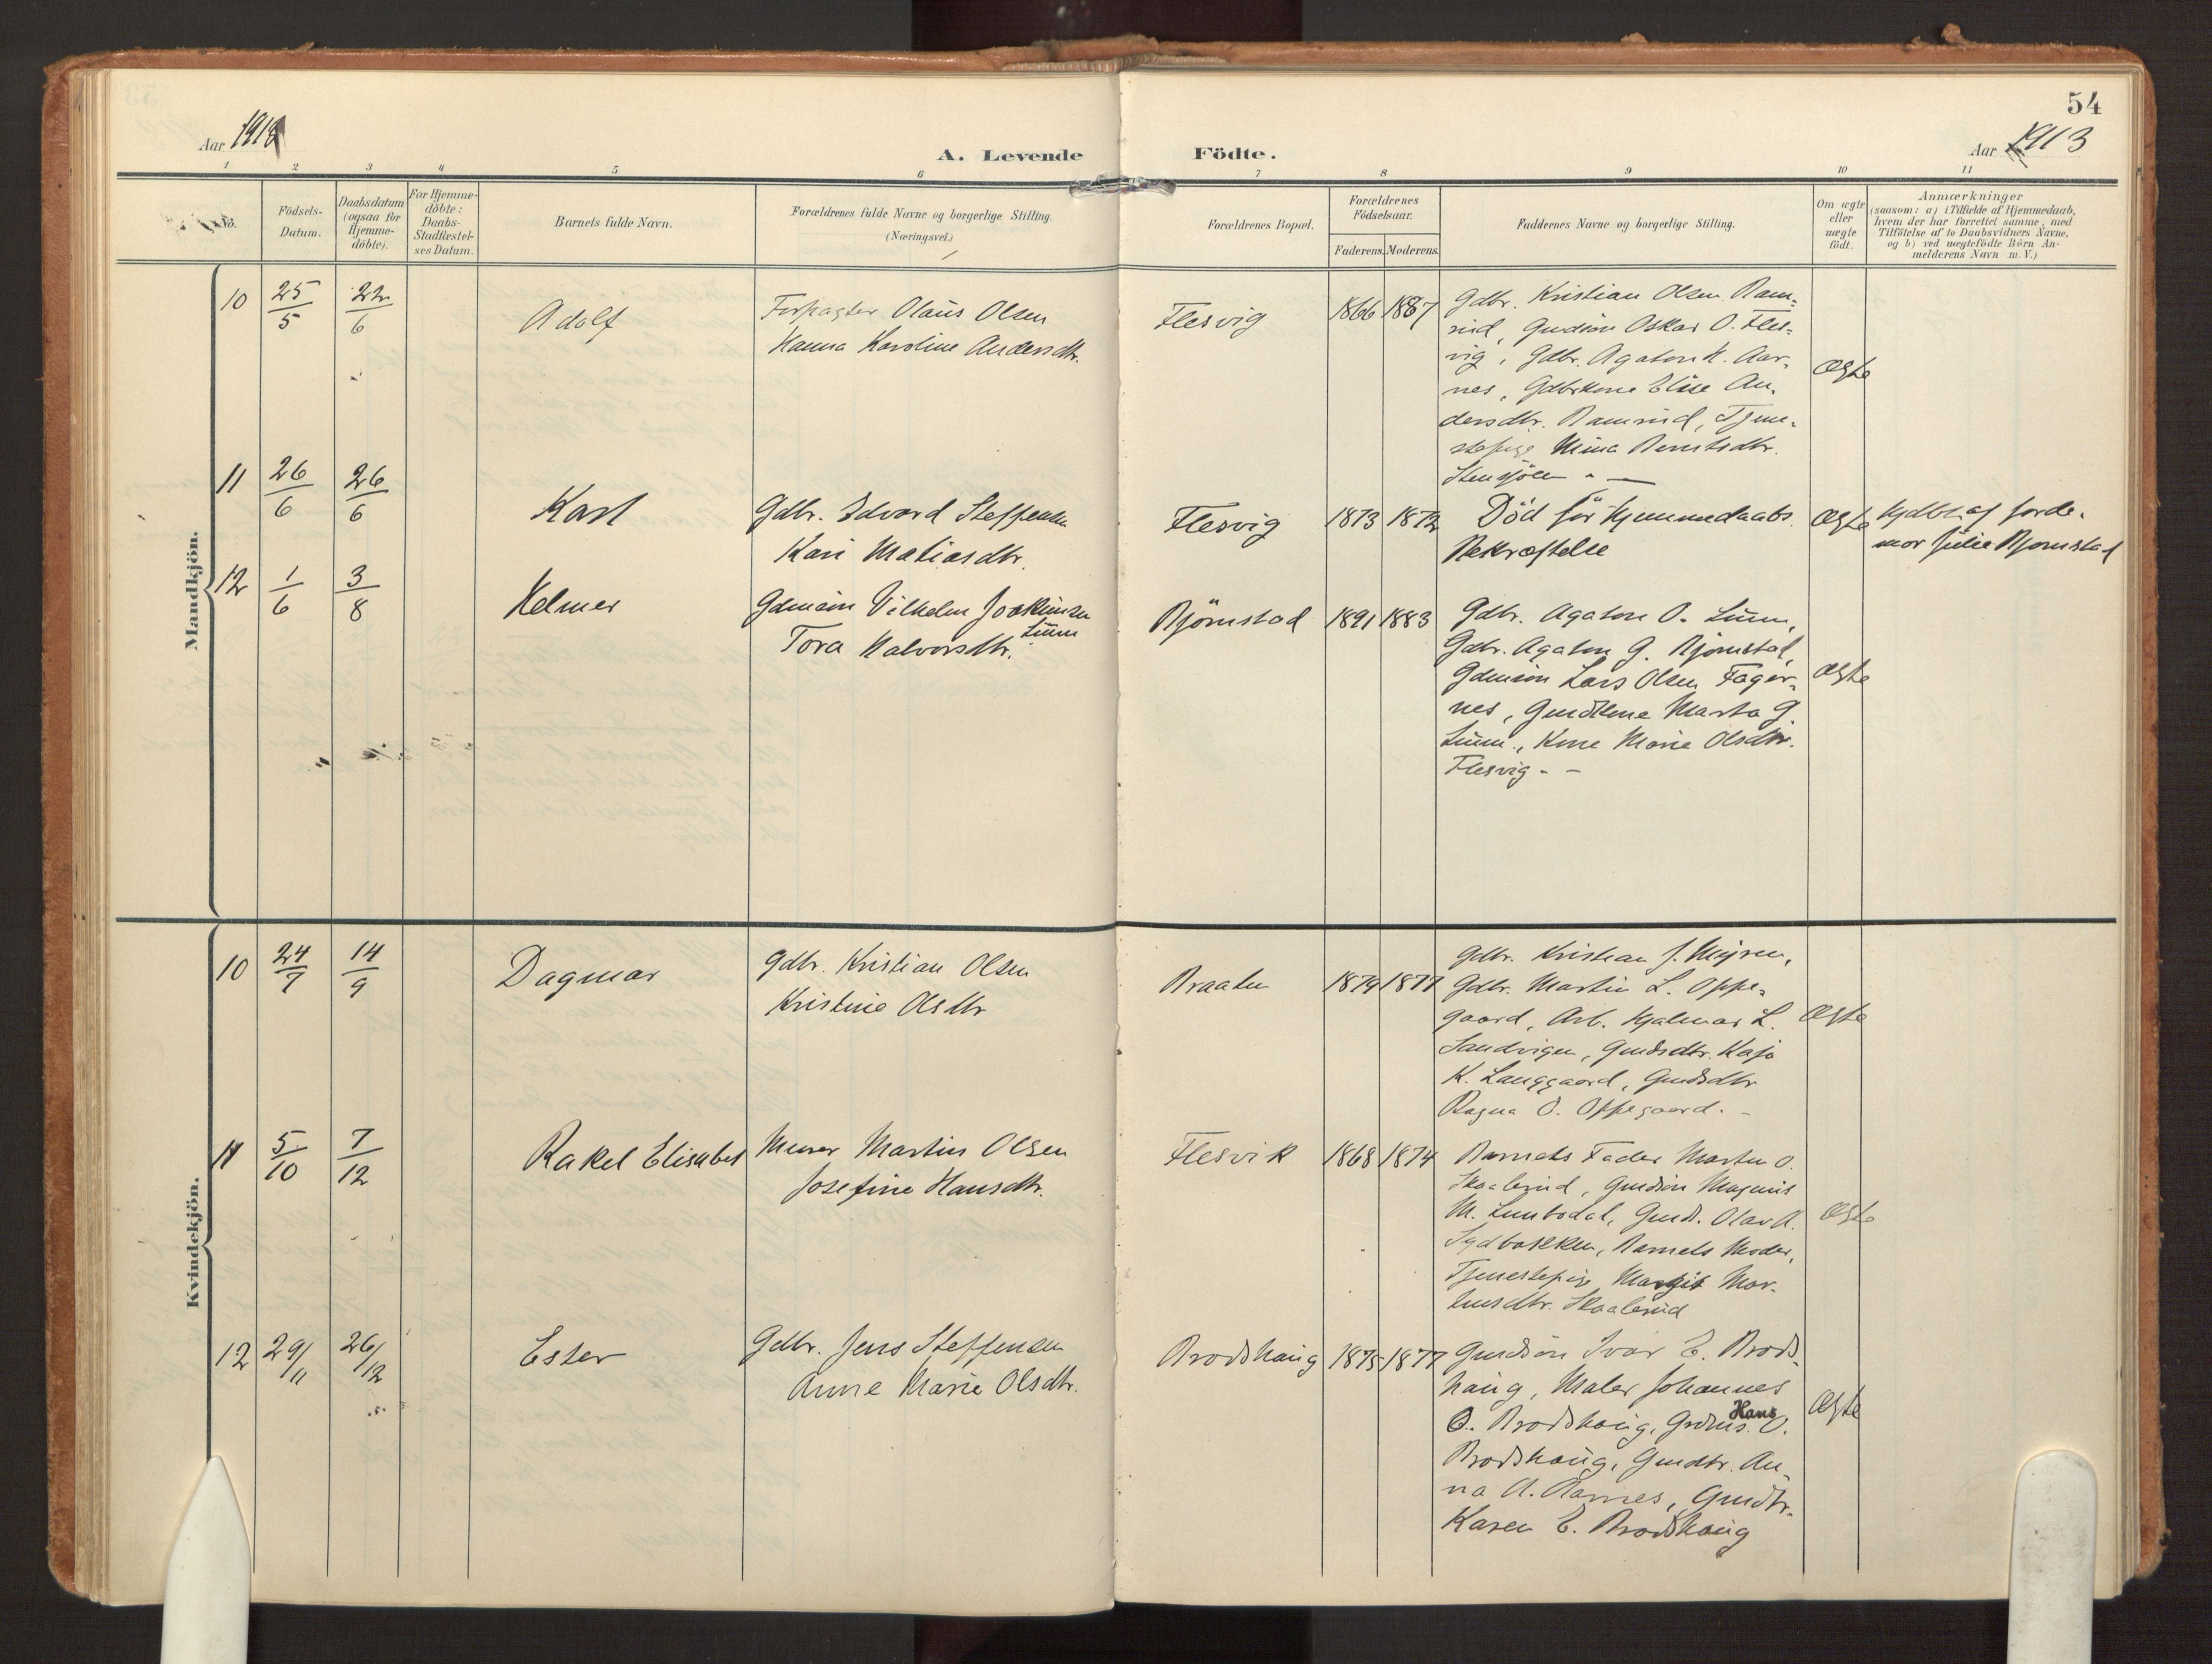 54
Aar 1913
Aar 1913
A. Levende Födte.
1 2 3 4 5 6 7 8 9 10 11
No.
Födsels-
Datum.
Daabsdatum
(ogsaa for
Hjemme-
döbte).
For Hjemme-
döbte:
Daabs-
Stadfæstel-
ses Datum.
Barnets fulde Navn.
Forældrenes fulde Navne og borgerlige Stilling.
(Næringsvei.)
Forældrenes Bopæl.
Forældrenes
Födselsaar.
Faderens. Moderens.
Faddernes Navne og borgerlige Stilling.
Om ægte
eller
uægte
födt.
Anmærkninger
(saasom: a) i Tilfælde af Hjemmedaab,
hvem der har forrettet samme, med
Tilföielse af to Daabsvidners Navne,
og b) ved uægtefödte Börn An-
melderens Navn m. V.)
Mandkjön.
10 25/5 22/6 Adolf
Forpagter Olaus Olsen
Hanna Karoline Andersdtr.
Flesvig 1866 1867
Gdbr. Kristian Olsen Ram-
rud, Gmdsön Oskar O. Fles-
vig, Gdbr. Agaton K. Aar-
nes, Gdbrkone Elise An-
dersdtr. Ramrud, Tjene-
stepige Mina Berntsdtr.
Ægte
11 26/6 26/6 Karl
Gdbr. Edvard Steffensen
Kari Matiasdtr.
Flesvig 1873 1872
Död för hjemmedaabs
Bekræftelse
Ægte
hjdbt af jorde-
mor Julie Bjornstad
12 1/6 3/8 Helmer
Gdmsön Vilhelm Joakimsen
Linn
Tora Halvorsdtr.
Bjørnstad 1891 1883
Gdbr. Agaton O. Linn,
Gdbr. Agaton G. Bjørnstad,
Gdmsön Lars Olsen Fager-
nes, Gmdkone Marta G.
Linn, Kone Marie Olsdtr.
Flesvig - -
Ægte
Kvindekjön.
10 24/7 14/9 Dagmar
Gdbr. Kristian Olsen
Kristine Olsdtr
Braaten 1879 1877
Gdbr. Kristian J. Mÿren,
Gdbr. Martin L. Oppe-
gaard, Arb. Hjalmar L.
Sandvigen, Gmdsdtr. Kaja
K. Langgaard, Gmdsdtr
Ragna O. Oppegaard. -
Ægte
11 5/10 7/12 Rakel Elisabet
Murer Martin Olsen
Josefine Hansdtr.
Flesvik 1868 1874
Barnets Fader Martin O.
Skaalerud, Gmdsön Magnus
M. Lundsdal, Gmds. Olav A.
Sydbakken, Barnets Moder,
Tjenestepige Margit Mar-
tinsdtr. Skaalerud
Ægte
12 29/11 26/12 Ester
Gdbr. Jens Steffensen
Anne Marie Olsdtr.
Brodshaug 1875 1877
Gmdsön Ivar E. Brods-
haug, Maler Johannes
O. Brodshaug, Grdms. Hans O.
Brodshaug, Gmdtr. An-
na A. Aarnes, Gmdtr.
Karen E. Brodshaug
Ægte